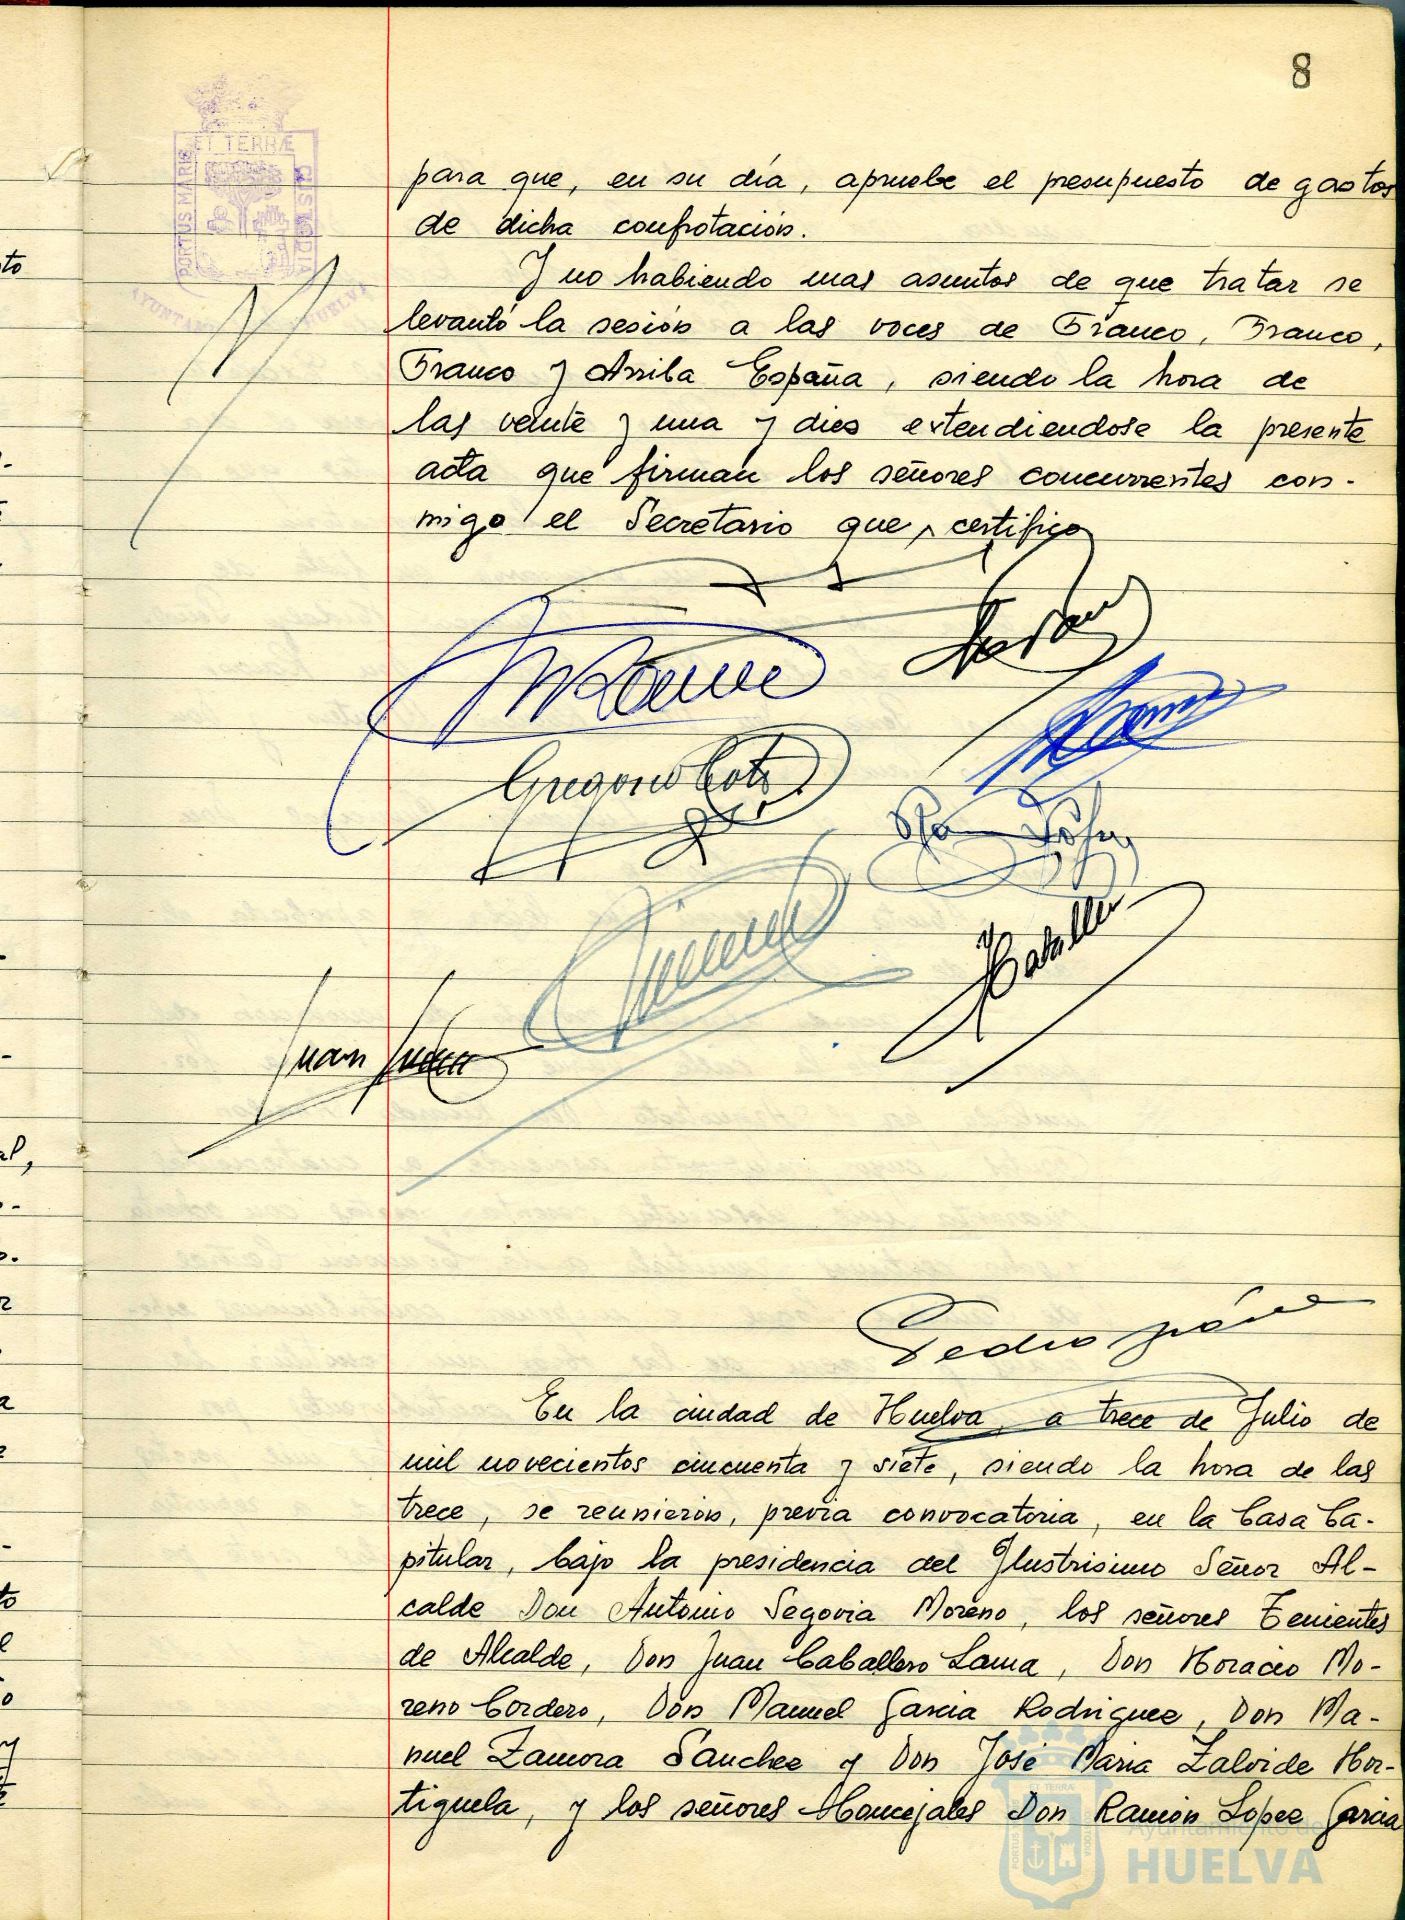 8
ET TERRÆ
PORTUS MARIS
CUSTODIA
HUELVA
para que, en su día, apruebe el presupuesto de gastos
de dicha confrotación.
Y no habiendo mas asuntos de que tratar se
levantó la sesión a las voces de Franco, Franco,
Franco y Arriba España, siendo la hora de
las veinte y una y diez extendiendose la presente
acta que firman los señores concurrentes con-
migo el Secretario que, certifico
Gregorio
Juan
Pedro
En la ciudad de Huelva, a trece de Julio de
mil novecientos cincuenta y siete, siendo la hora de las
trece, se reunieron, previa convocatoria, en la Casa Ca-
pitular, bajo la presidencia del Ilustrisimo Señor Al-
calde Don Antonio Segovia Moreno, los señores Tenientes
de Alcalde, Don Juan Caballero Lama, Don Horacio Mo-
reno Cordero, Don Manuel Garcia Rodriguez, Don Ma-
nuel Zamora Sanchez y Don José Maria Zalvide Hor-
tiguela, y los señores Concejales Don Ramón Lopez Garcia
Ayuntamiento de
HUELVA